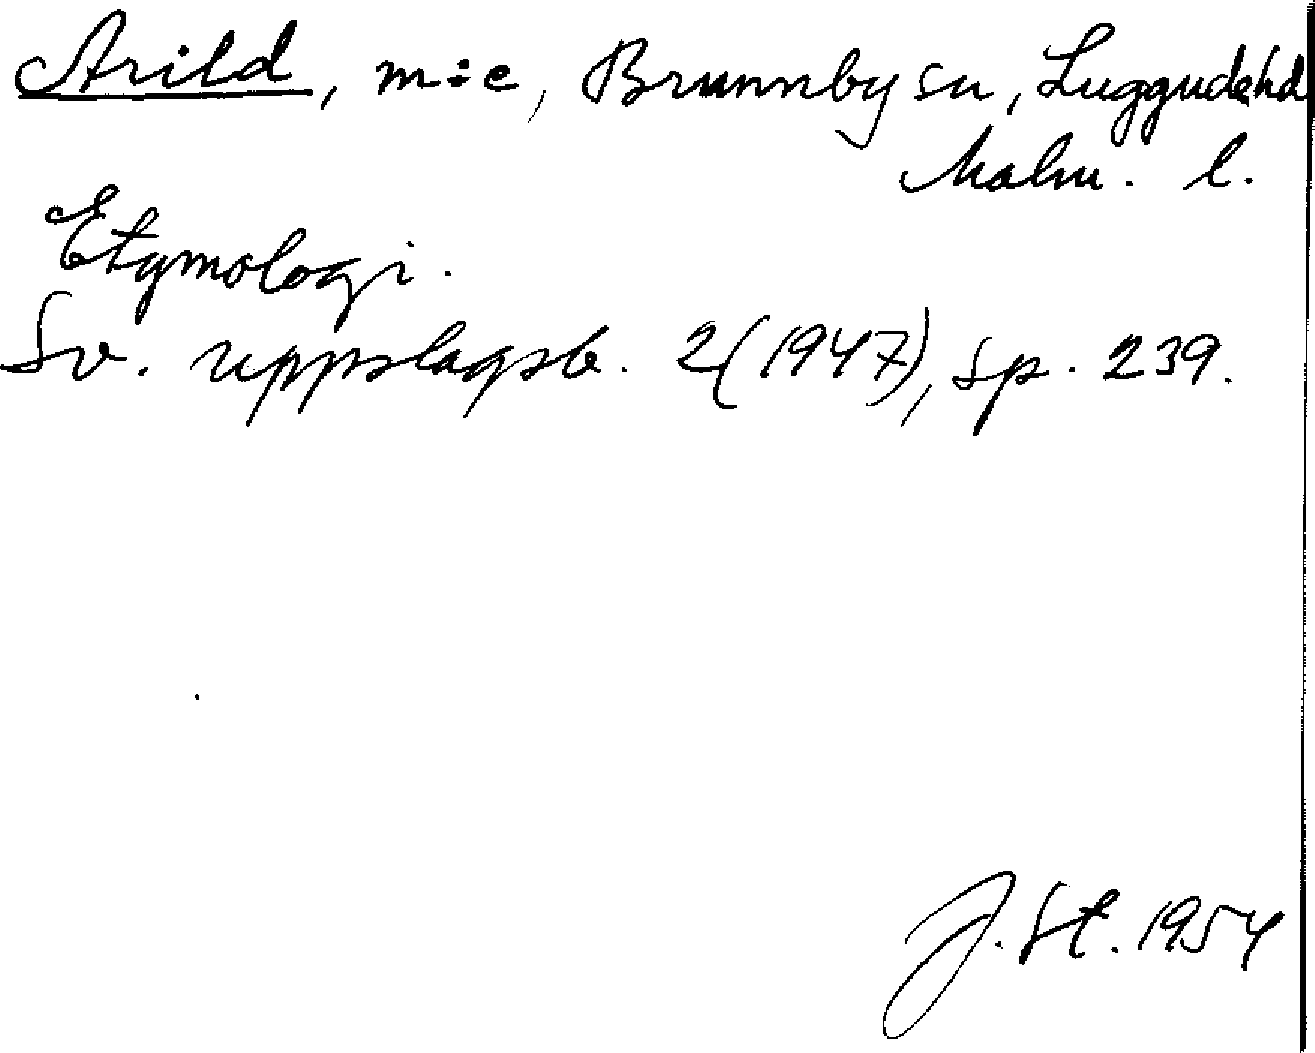 Arild, m:e, Brunnby sn, Luggude hd
Malm. l.
Etymologi.
Sv. uppslagsb. 2(1947), sp. 239.
J. St. 1954